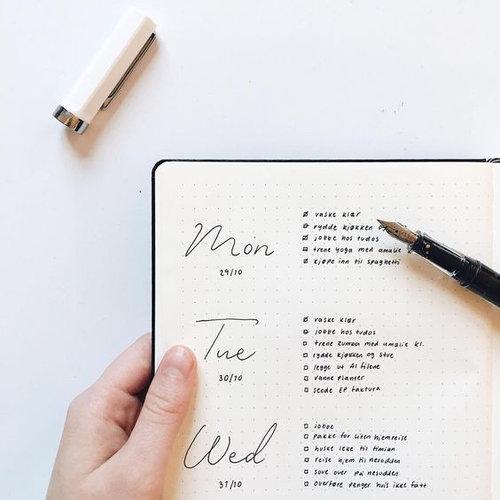 Mon
29/10
vaske klær
rydde kjøkken
jobbe hos tudos
trene yoga med amalie
kjøpe inn til spaghetti
Tue
30/10
vaske klær
jobbe hos tudos
trene zumba med amalie kl.
rydde kjøkken og stue
legge ut AI filene
vanne planter
sende EP faktura
Wed
31/10
jobbe
pakke for liten hjemreise
huske leke til timian
reise hjem til nesodden
sove over på nesodden
overføre penger hvis ikke fått